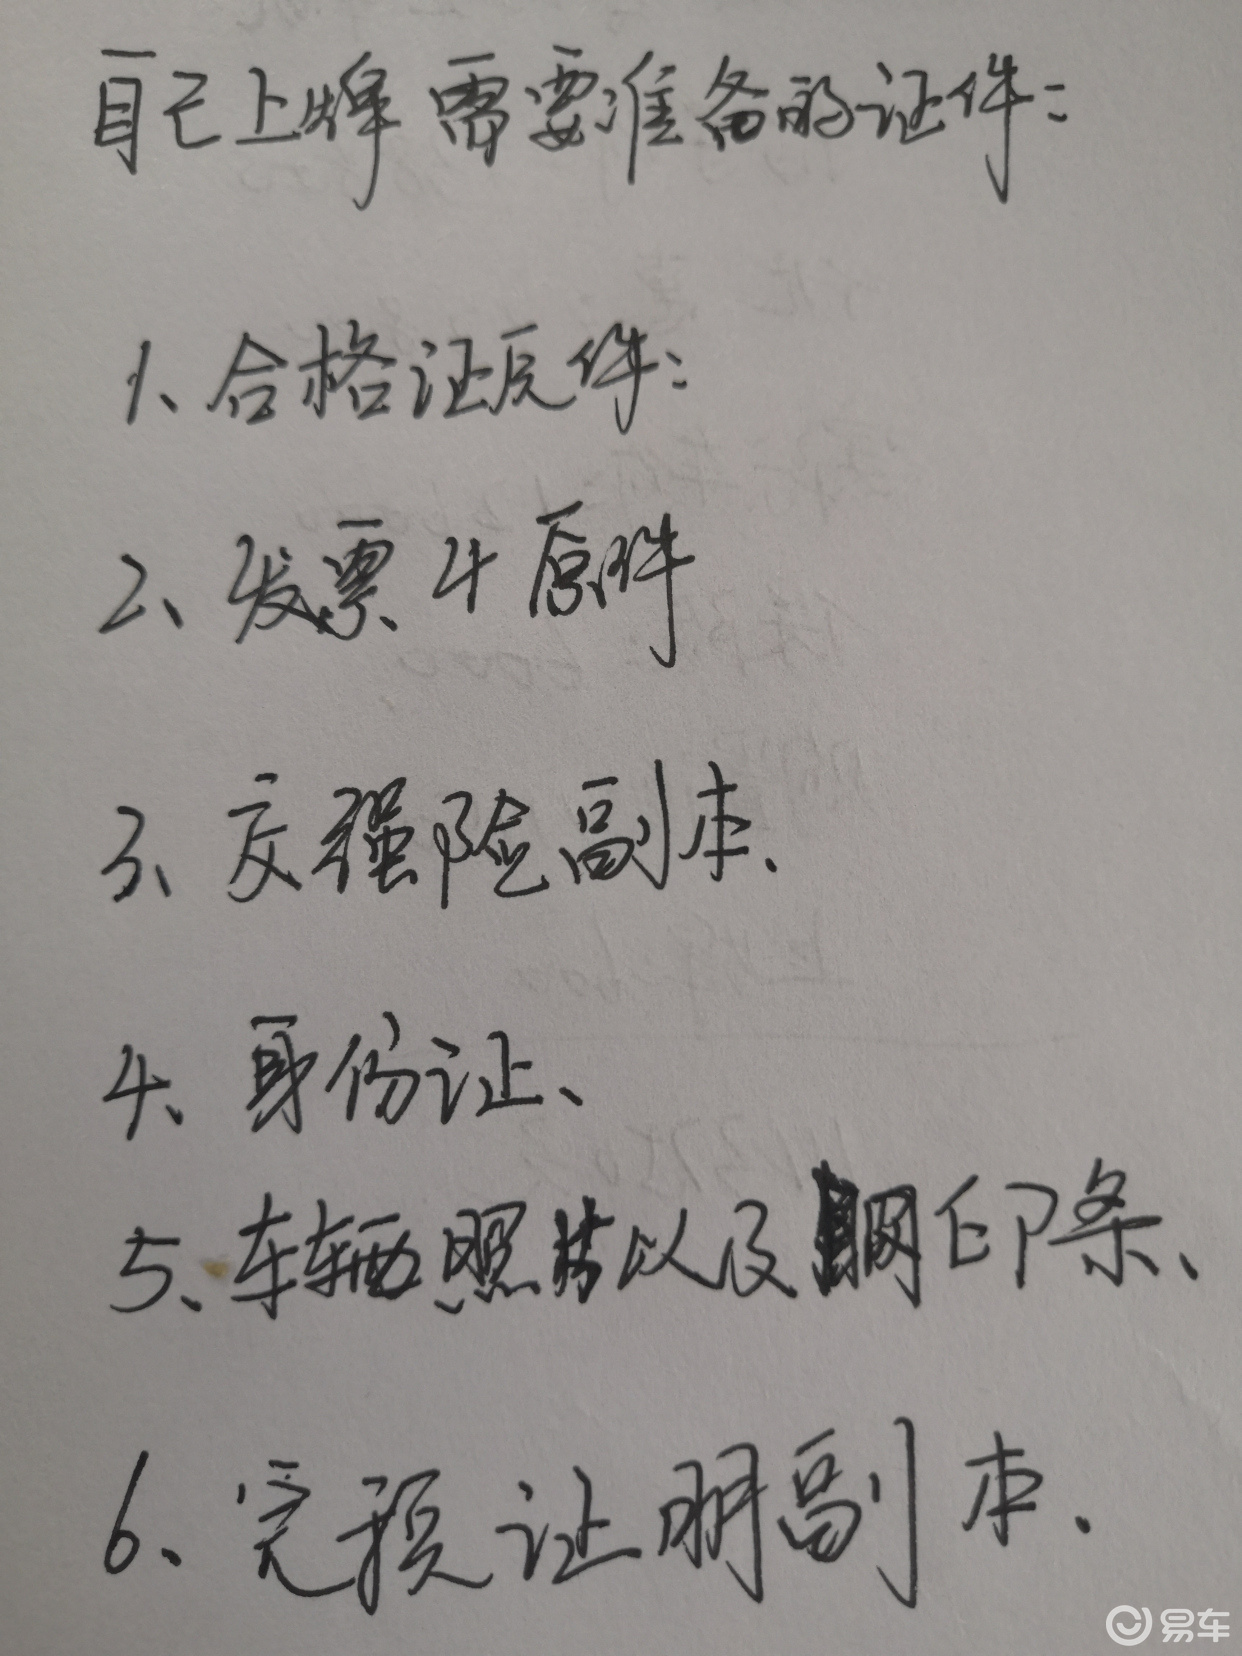 自己上牌需要准备的证件:
1、合格证原件:
2、发票4原件
3、交强险副本、
4、身份证、
5、车辆照片以及钢印条、
6、完税证明副本、
易车